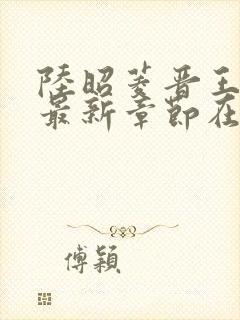 陸昭菱晋王
最新章節在
傅穎